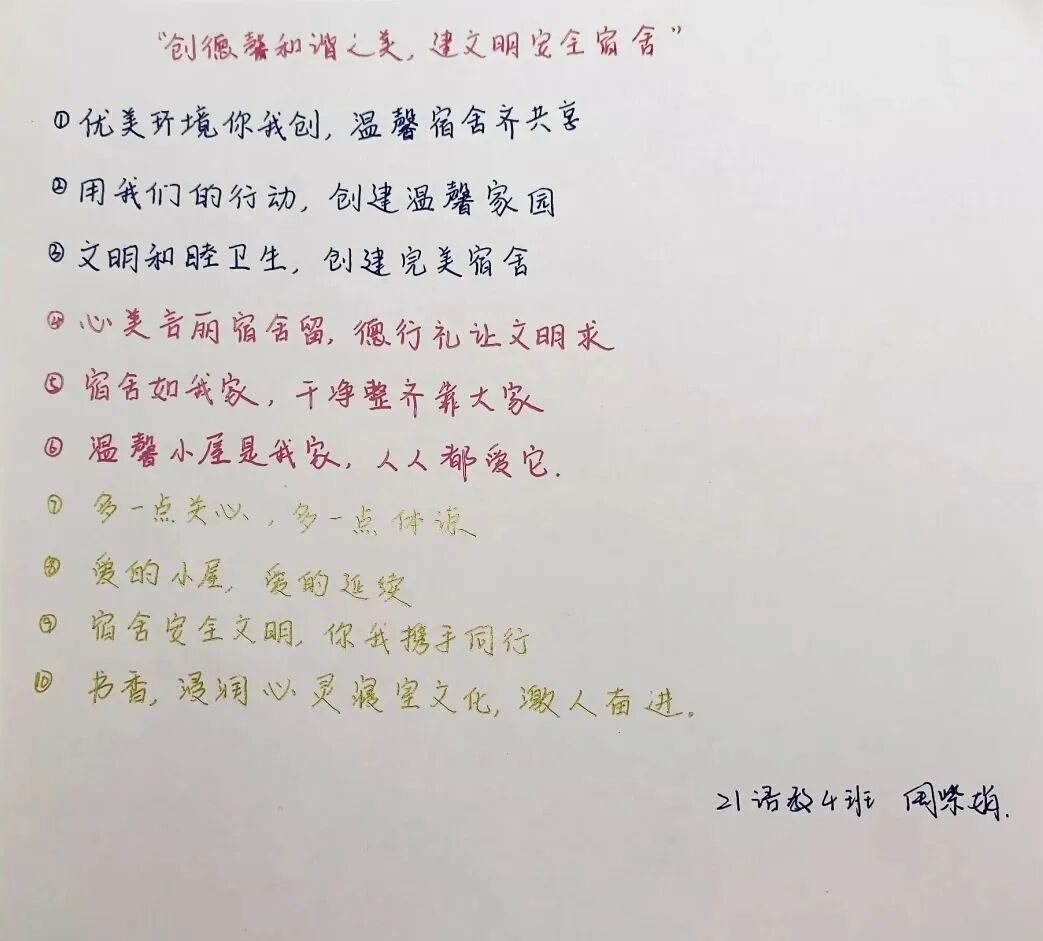 “创德馨和谐之美，建文明安全宿舍”
①优美环境你我创，温馨宿舍齐共享
②用我们的行动，创建温馨家园
③文明和睦卫生，创建完美宿舍
④心美言丽宿舍留，德行礼让文明求
⑤宿舍如我家，干净整齐靠大家
⑥温馨小屋是我家，人人都爱它.
⑦多一点关心，多一点体谅
⑧爱的小屋，爱的延续
⑨宿舍安全文明，你我携手同行
⑩书香，浸润心灵寝室文化，激人奋进。
21语教4班 周紫